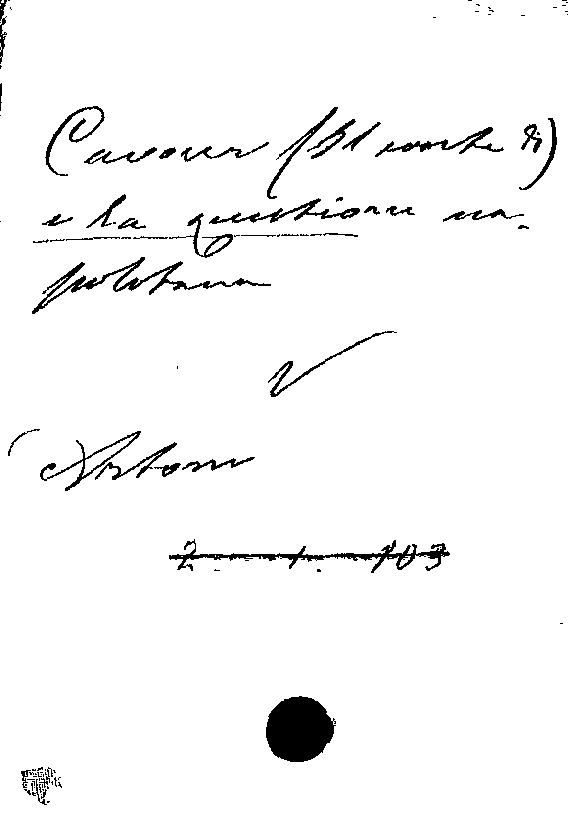 Cavour (Il conte di)
e la questione na-
poletana
V
Artom
2. 1. 103